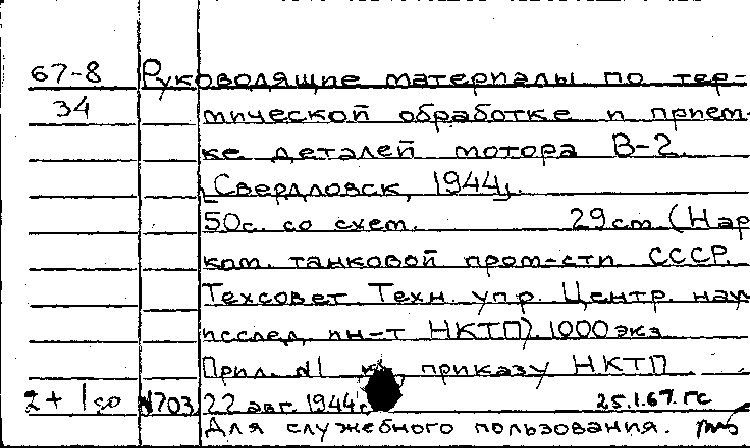 67-8 Руководящие материалы по тер-
34 мической обработке и прием-
ке деталей мотора В-2.
[Свердловск, 1944].
50с. со схем. 29см (Нар.
ком. танковой пром-сти СССР.
Техсовет Техн. упр. Центр. науч.
исслед. ин-т НКТП). 1000 экз
Прил. №1 к приказу НКТП
2+1 №703 22 авг. 1944г. 25.1.67. ГС
Для служебного пользования.